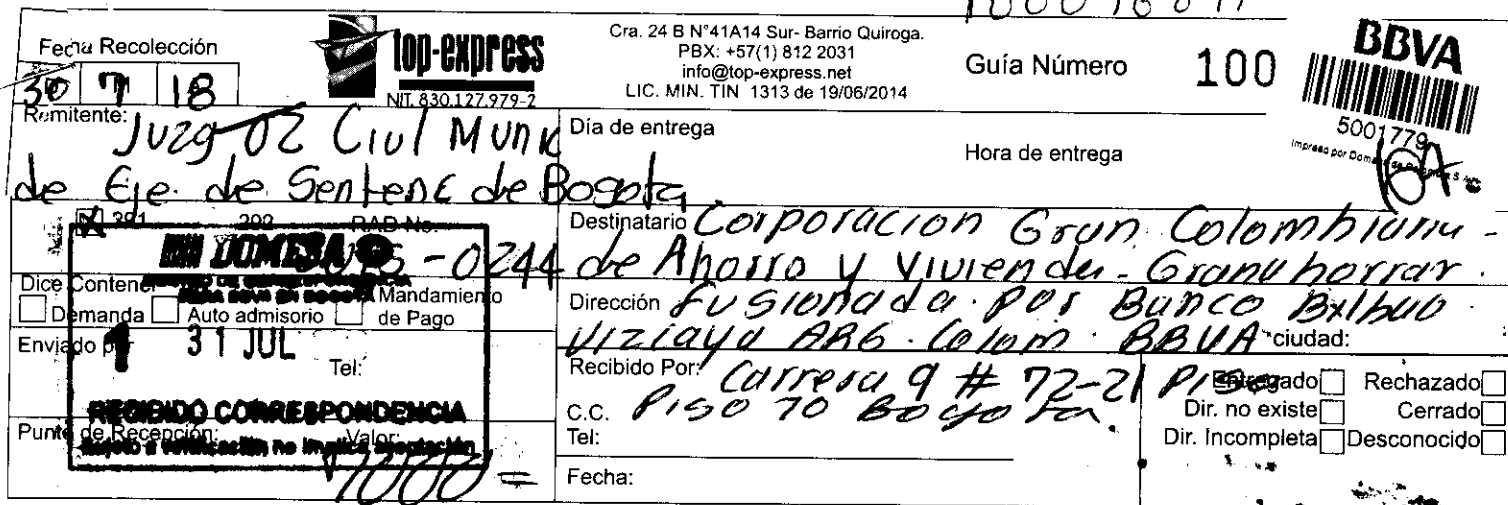 Fecha Recolección
30 7 18
top-express
NIT. 830.127.979-2
Cra. 24 B N°41A14 Sur- Barrio Quiroga.
PBX: +57(1) 812 2031
info@top-express.net
LIC. MIN. TIN 1313 de 19/06/2014
Guía Número 100
BBVA
5001779
Impreso por
Remitente: Juzg 02 Civl Munic
de Eje. de Sentenc de Bogota
Día de entrega
Hora de entrega
291 292 RAD No.
-0244
DOMESA
CENTRO DE CORRESPONDENCIA
PARA BBVA EN BOGOTA
1
31 JUL
RECIBIDO CORRESPONDENCIA
Sujeto a verificación no implica aceptación
Dice Contener
Demanda Auto admisorio Mandamiento de Pago
Enviado por
Tel:
Punto de Recepción: Valor:
Destinatario Corporacion Gran Colombiana -
de Ahorro y Vivienda - Granahorrar.
Dirección fusionada por Banco Bilbao
Vizcaya ARG. Colom. BBVA ciudad:
Recibido Por: Carrera 9 # 72-21 Piso
C.C. Piso 10 Bogota.
Tel:
Fecha:
Entregado Rechazado
Dir. no existe Cerrado
Dir. Incompleta Desconocido